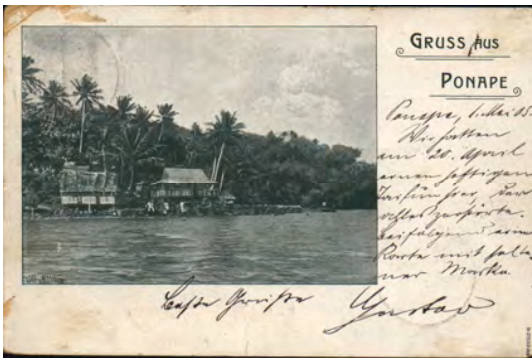 GRUSS AUS
PONAPE
Ponape, 1. Mai 05.
Wir hatten
am 20. April
einen heftigen
Taifun hier, der
alles zerstörte.
Beifolgend eine
Karte mit selte-
ner Marke.
Beste Grüsse
Gustav